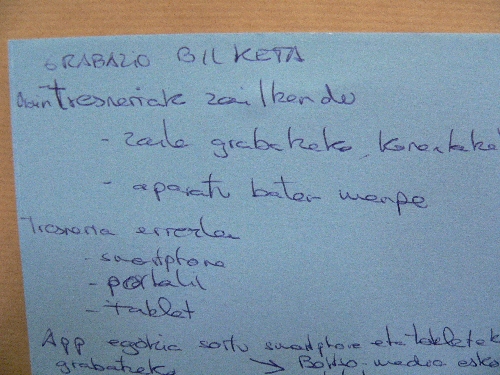 GRABAZIO BILKETA
Orain Tresneriak zailkendu
- zaila grabatzeko,
- aparatu baten menpe
Tresneria erreza
- smartphone
- portatil
- tablet
App egokia sortu smartphone eta tabletek
grabatzeko → Bo media esko